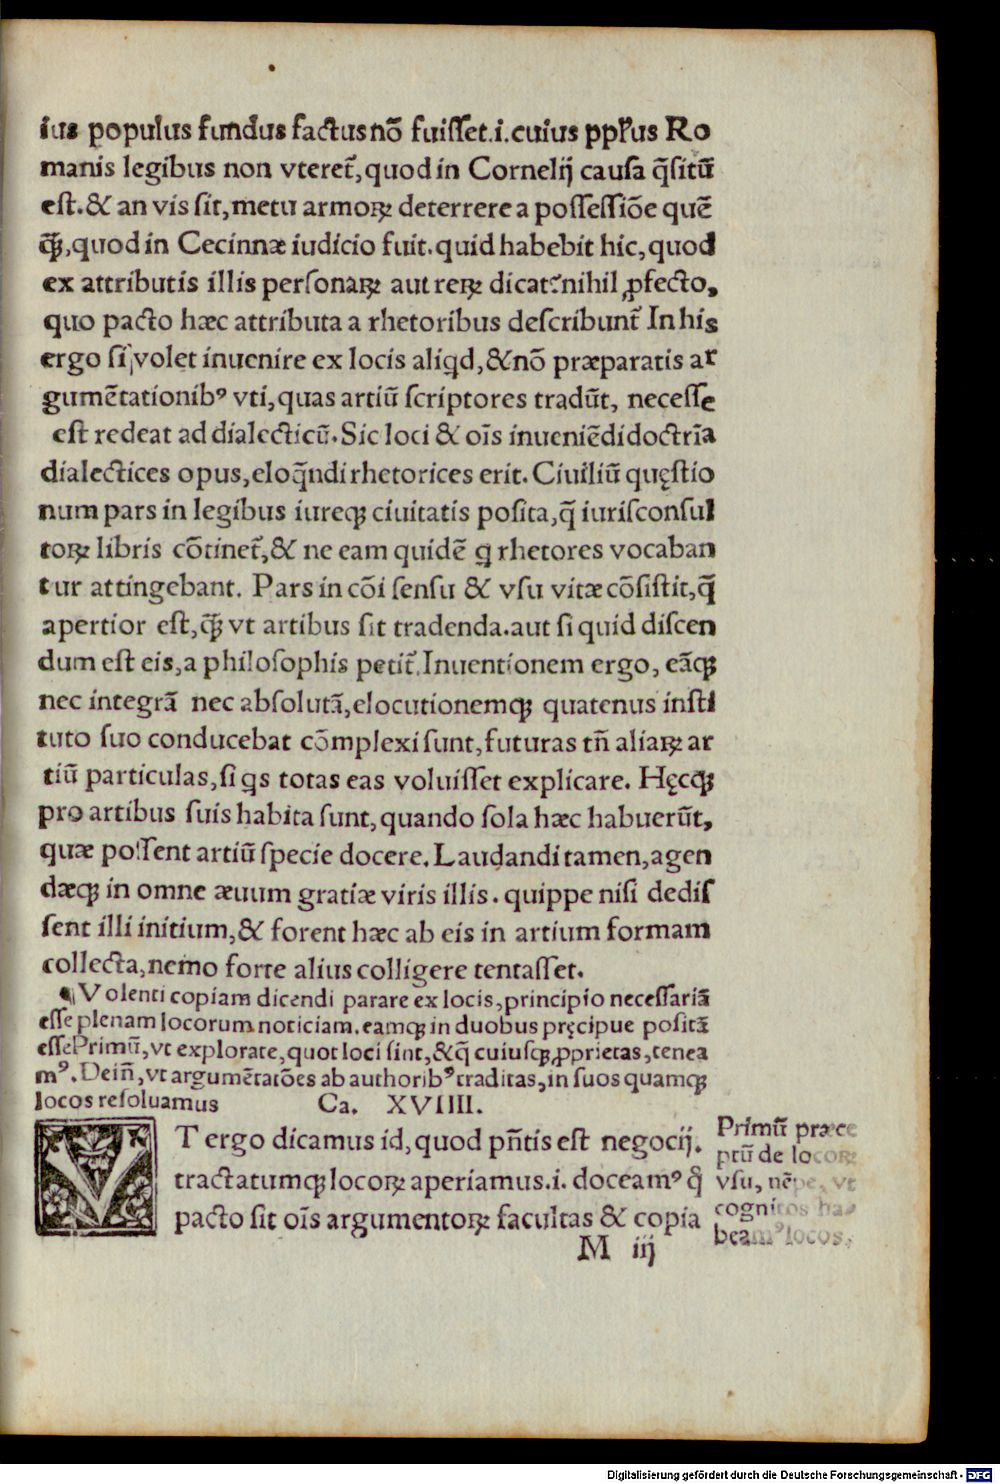 ius populus fundus factus nõ fuiſſet.i.cuius ppl̃us Ro
manis legibus non vteret̃,quod in Cornelij cauſa q̃ſitũ
eſt.& an vis ſit,metu armoꝝ deterrere a poſſeſſiõe quẽ
q̃ꝫ,quod in Cecinnæ iudicio fuit.quid habebit hic,quod
ex attributis illis perſonaꝝ aut reꝝ dicat̃?nihil ꝓfecto,
quo pacto hæc attributa a rhetoribus deſcribunt̃ In his
ergo ſi volet inuenire ex locis aliqd,&nõ præparatis ar
gumẽtationibꝰ vti,quas artiũ ſcriptores tradũt, neceſſe
eſt redeat ad dialecticũ.Sic loci & oĩs inueniẽdi doctrĩa
dialectices opus,eloq̃ndi rhetorices erit. Ciuiliũ quęſtio
num pars in legibus iureqꝫ ciuitatis poſita,q̃ iuriſconſul
toꝝ libris cõtinet̃,& ne eam quidẽ q rhetores vocaban
tur attingebant. Pars in cõi ſenſu & vſu vitæ cõſiſtit,q̃
apertior eſt,q̃ꝫ vt artibus ſit tradenda.aut ſi quid diſcen
dum eſt eis,a philoſophis petit̃.Inuentionem ergo, eãqꝫ
nec integrã nec abſolutã,elocutionemqꝫ quatenus inſti
tuto ſuo conducebat cõmplexi ſunt,futuras tñ aliaꝝ ar
tiũ particulas,ſi qs totas eas voluiſſet explicare. Hęcqꝫ
pro artibus ſuis habita ſunt,quando ſola hæc habuerũt,
quæ poſſent artiũ ſpecie docere.Laudandi tamen,agen
dæqꝫ in omne æuum gratiæ viris illis. quippe niſi dediſ
ſent illi initium,& forent hæc ab eis in artium formam
collecta,nemo forte alius colligere tentaſſet.
¶Volenti copiam dicendi parare ex locis,principio neceſſariã
eſſe plenam locorum noticiam.eamqꝫ in duobus pręcipue poſitã
eſſePrimũ,vt explorate,quot loci ſint,&q̃ cuiuſqꝫ ꝓprietas,tenea
mꝰ.Deiñ,vt argumẽtatões ab authoribꝰ traditas,in ſuos quamqꝫ
locos reſoluamus Ca. XVIIII.
VT ergo dicamus id,quod pñtis eſt negocij.
tractatumqꝫ locoꝝ aperiamus.i. doceamꝰ q̃
pacto ſit oĩs argumentoꝝ facultas & copia
Primũ præce
ptũ de locoꝝ
vſu, nẽpe, vt
cognitos ha-
beamꝰ locos.
M iij
Digitalisierung gefördert durch die Deutsche Forschungsgemeinschaft - DFG